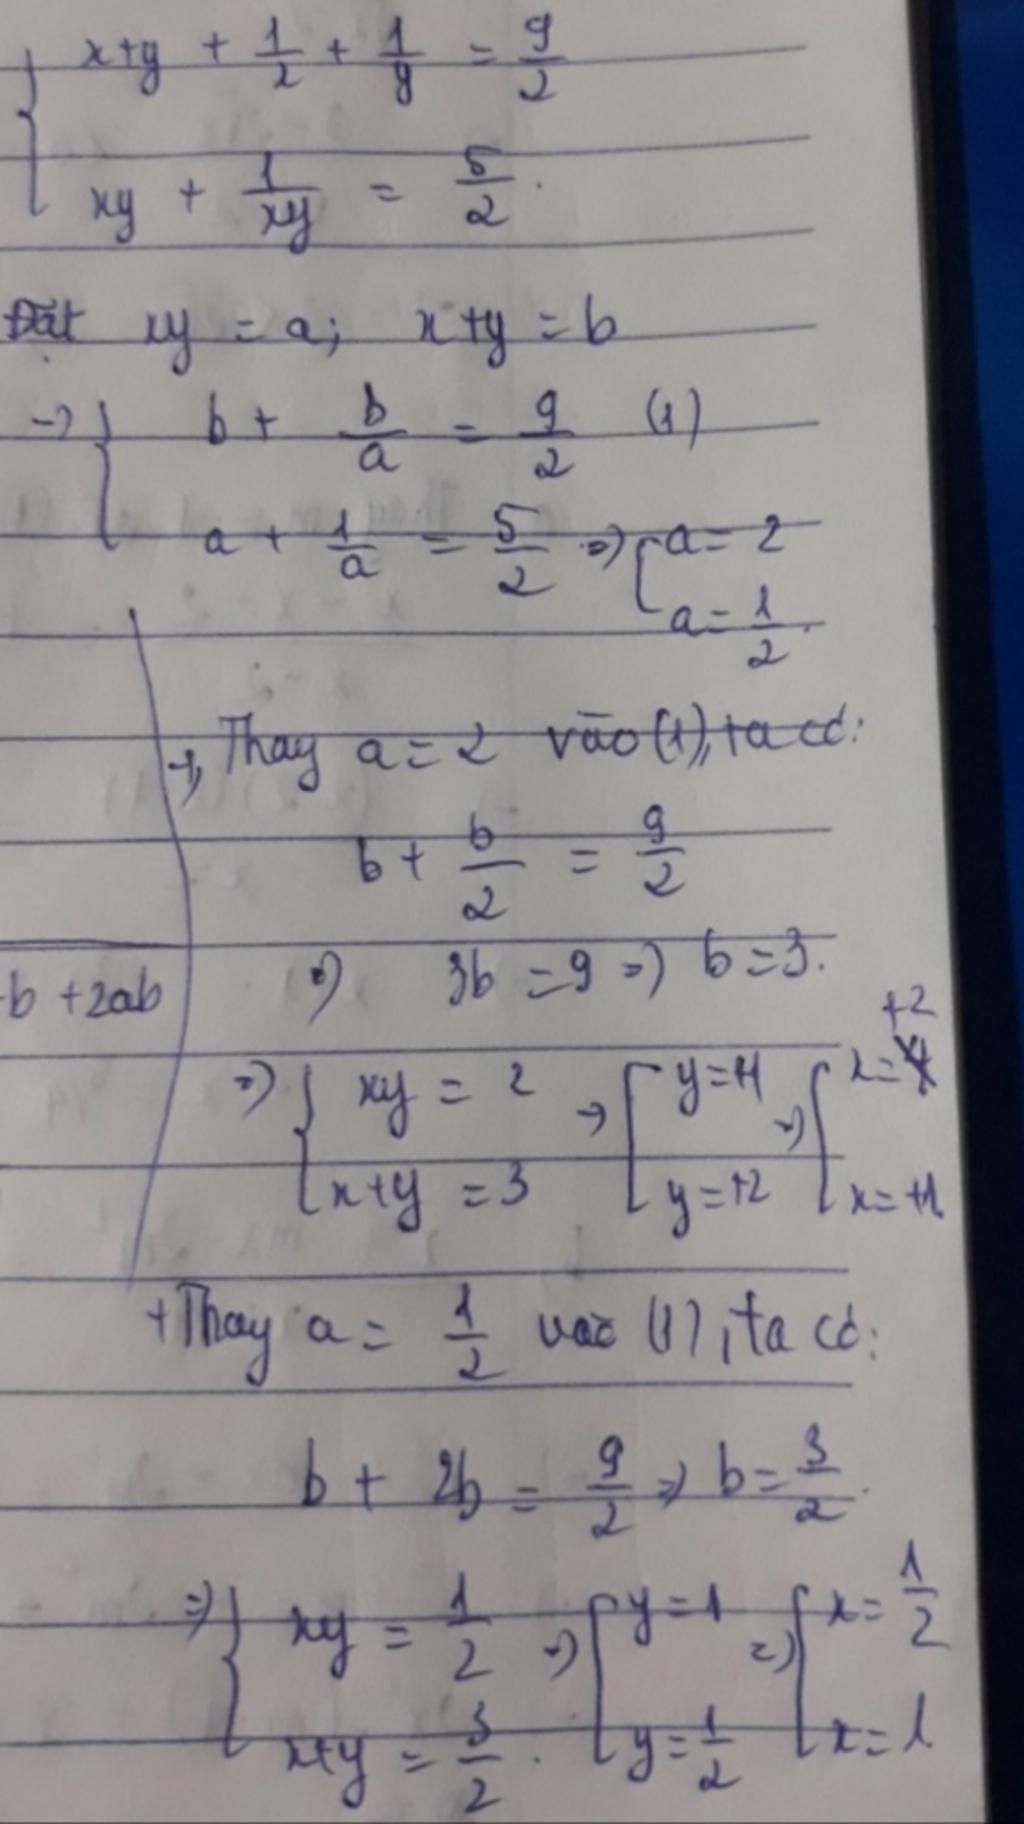 x+y + 1/x + 1/y = 9/2
xy + 1/xy = 5/2.
Đặt xy = a; x+y = b
=> b + b/a = 9/2 (1)
a + 1/a = 5/2 => a = 2
a = 1/2.
+, Thay a = 2 vào (1), ta có:
b + b/2 = 9/2
-b + 2ab
=> 3b = 9 => b = 3.
+2
=> xy = 2 => y = +1 => x =
x+y = 3 y = +2 x = +1
+ Thay a = 1/2 vào (1), ta có:
b + 2b = 9/2 => b = 3/2.
=> xy = 1/2 => y = 1 => x = 1/2
x+y = 3/2. y = 1/2 x = 1